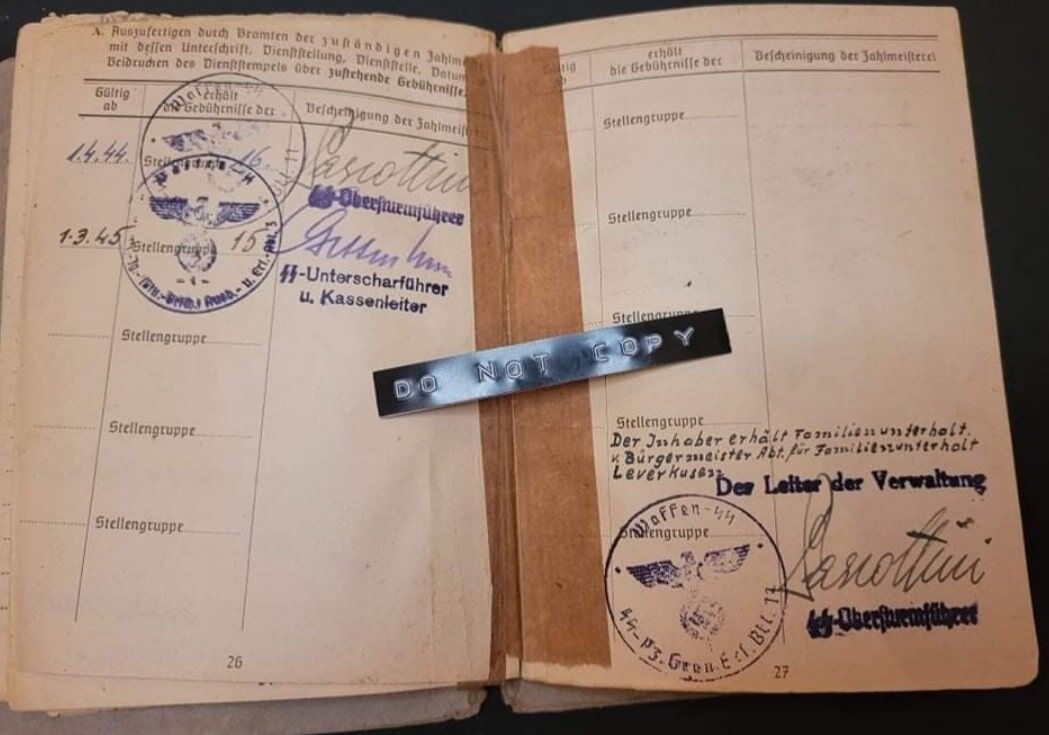 A. Auszufertigen durch Beamten der zuständigen
mit dessen Unterschrift, Dienststellung, Dienststelle, Datum
Beidrucken des Dienststempels über zustehende Gebührnisse.
Gültig ab
erhält die Gebührnisse der
Bescheinigung der
1.4.44.
Stellengruppe 16.
Waffen-SS
Btl. 11
SS-Obersturmführer
1.3.45
Stellengruppe 15
SS-Unterscharführer
u. Kassenleiter
Stellengruppe
Stellengruppe
Stellengruppe
26
DO NOT COPY
Gültig ab
erhält die Gebührnisse der
Bescheinigung der Zahlmeisterei
Stellengruppe
Stellengruppe
Stellengruppe
Stellengruppe
Der Inhaber erhält Familienunterhalt.
v. Bürgermeister Abt. für Familienunterholt
Leverkusen
Der Leiter der Verwaltung
Stellengruppe
Waffen-SS
SS-Pz. Gren. Btl. 11
SS-Obersturmführer
27